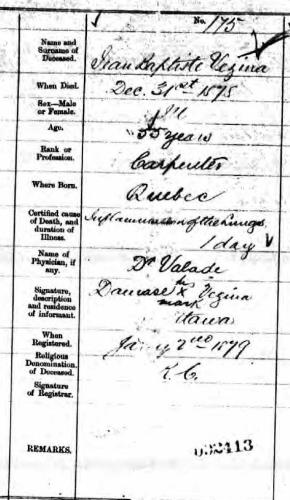 No. 175
Name and Surname of Deceased. Jean Baptiste Vezina
When Died. Dec. 31st 1878
Sex—Male or Female. M
Age. 55 years
Rank or Profession. Carpenter
Where Born. Quebec
Certified cause of Death, and duration of Illness. Inflammation of the Lungs
1 day
Name of Physician, if any. Dr Valade
Signature, description and residence of informant. his Vezina
mark
ttawa
When Registered. Ja y 2nd 1879
Religious Denomination of Deceased. R. C.
Signature of Registrar.
REMARKS. 032413